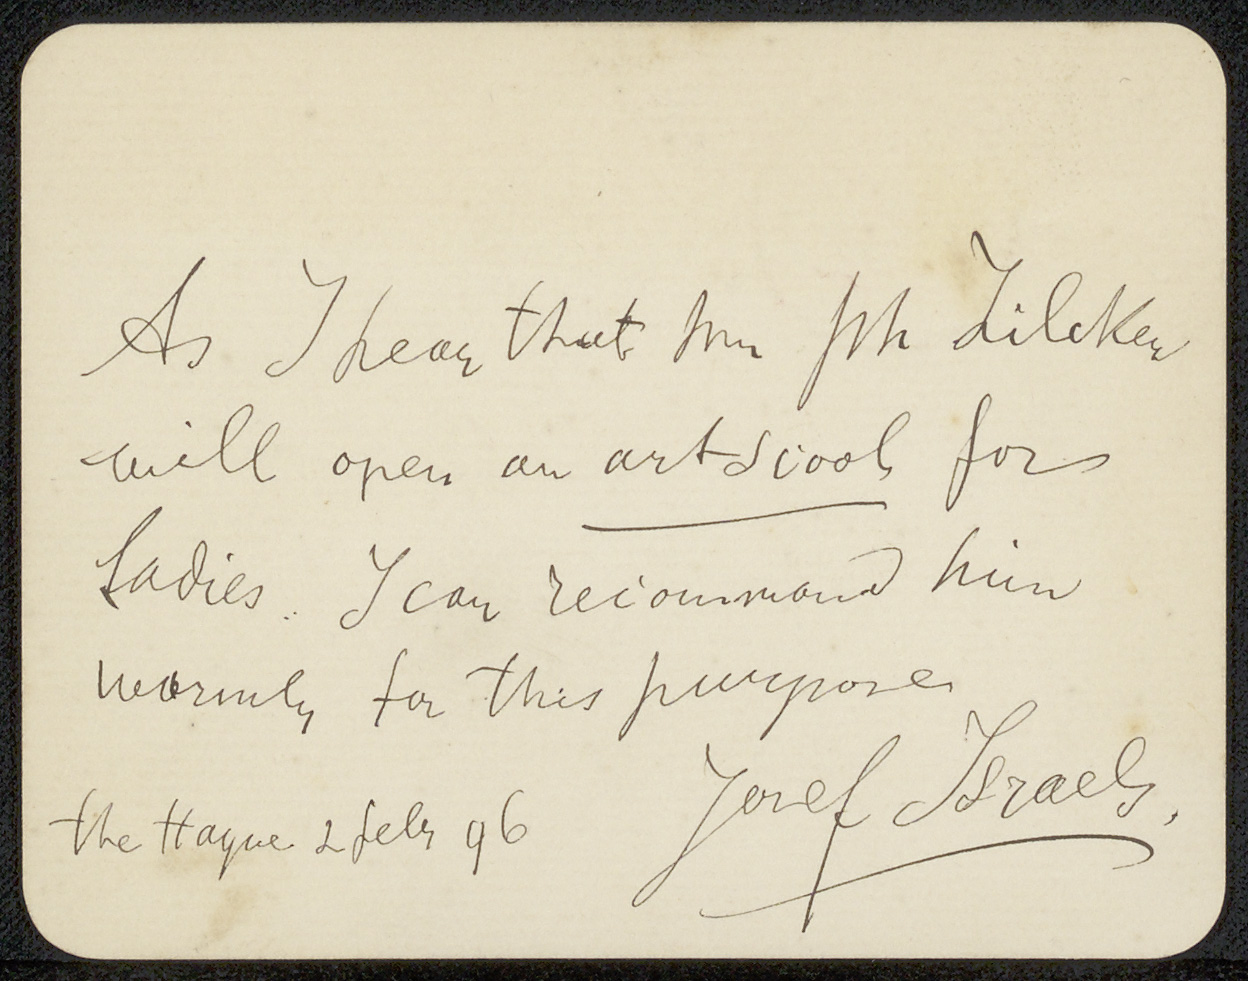 As I hear that Mr Ph Zilcken
will open an artscool for
Ladies. I can recommand him
warmly for this purpose
Jozef Israels.
the Hague 2 feby 96